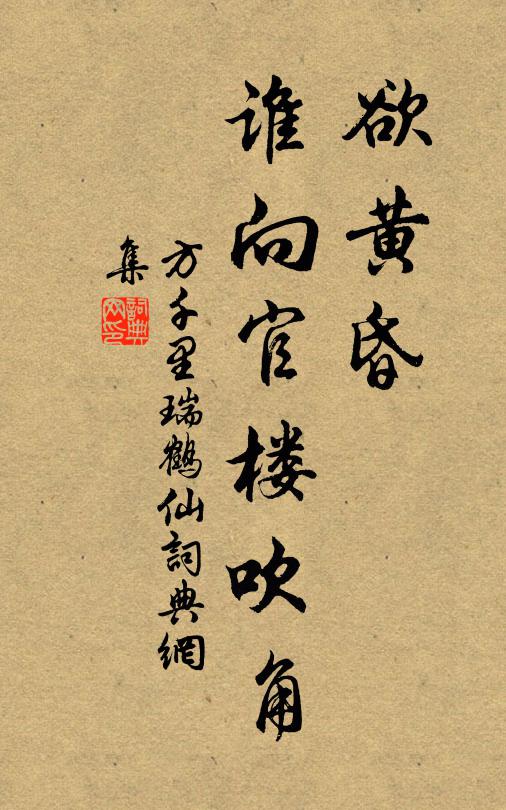 欲黄昏
谁向官楼吹角
方千里瑞鹤仙詞典網
集
詞典
网印